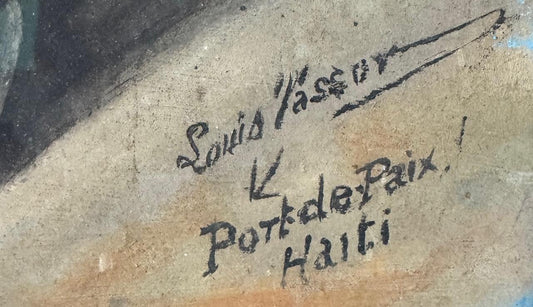 Louis Vassor
Port-de-Paix!
Haiti